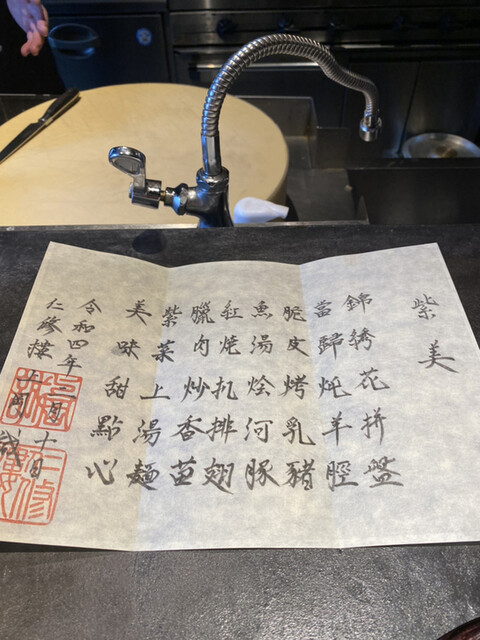 紫美
錦绣花拼盤
當歸炖羊脛
脆皮烤乳豬
魚湯燴河豚
紅燒扒排翅
臘肉炒香苗
紫菜上湯麵
美味甜點心
令和四年三月十日
仁修樓上岡誠